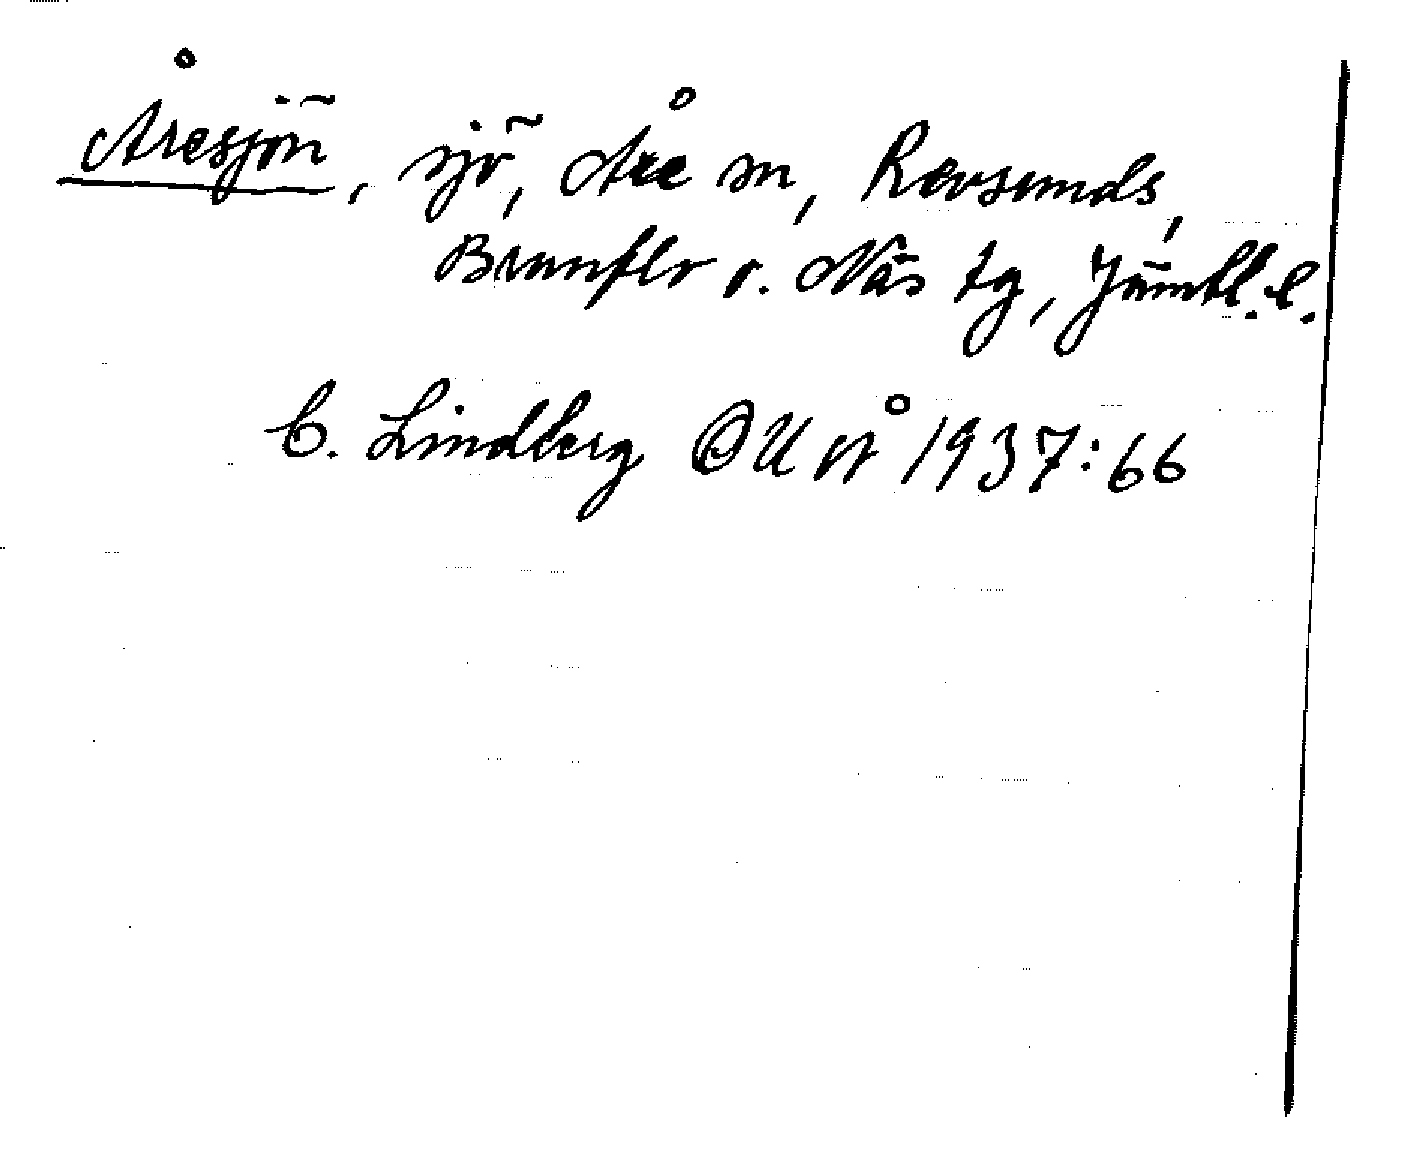 Åresjön, sjö, Åre sn, Revsunds,
Brunflo o. Näs tg, Jämtl. l.
C. Lindberg OUÅ 1937:66